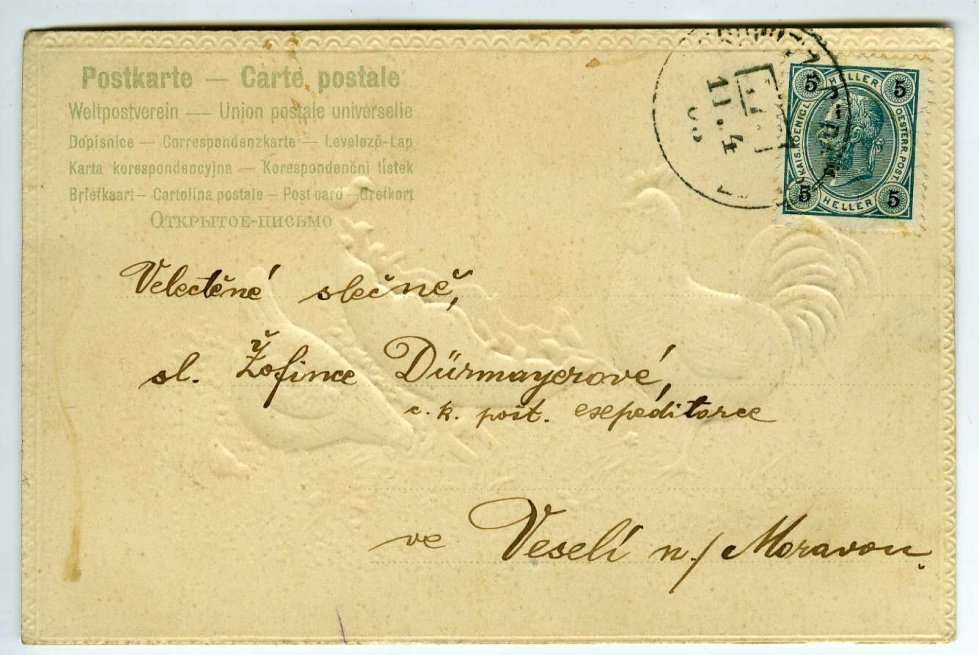 Postkarte — Carte postale
Weltpostverein — Union postale universelle
Dopisnice — Correspondenzkarte — Levelező-Lap
Karta korespondencyjna — Korespondenční lístek
Briefkaart — Cartolina postale — Post card — Brefkort
Открытое-письмо
5 HELLER 5
KAIS. KOENIGL. OESTERR. POST.
5 HELLER 5
11 4
Velectěné slečně,
sl. Žofince Dürmayerové,
c. k. pošt. expeditorce
ve Veselí n/Moravou.